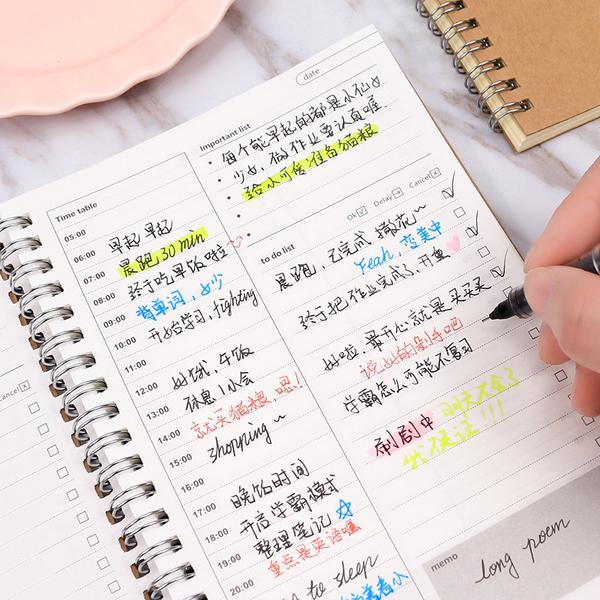 date
Important list
每个能早起的都是小仙女
少女, 做作业要认真喔
给小可怜准备猫粮
Time table
05:00
06:00
07:00
08:00
09:00
10:00
11:00
12:00
13:00
14:00
15:00
16:00
17:00
18:00
19:00
20:00
早起 早起
晨跑, 30 min
终于吃早饭啦
背单词, 加少
开始学习, fighting
好饿, 午饭
休息1小会
就买猫粮, 嗯!
shopping~
晚饭时间
开启学霸模式
整理笔记
重点是英语喔
to sleep
Ok
Delay
Cancel
to do list
晨跑, 已完成 撒花~
Yeah, 恋美中
终于把作业完成,开集
好啦 最开心就是买买买
说好的剁手吧
学霸怎么可能不复习
刷剧中
明天不会了
我保证!!!
Cancel
memo
long poem